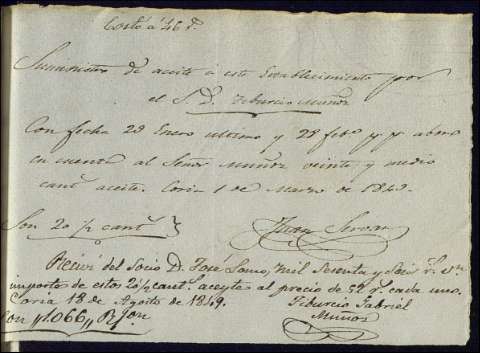 Costó á 46 r.
Suministro de aceite á este Establecimiento por
el S. D. Tiburcio Muñoz
Con fecha 29 Enero ultimo y 28 feb.º p. p. abono
en cuenta al Señor Muñoz veinte y medio
cant.s aceite. Coria 1 de Marzo de 1849.
Son 20 1/2 cant.s }
Juan Servan
Recivi del Socio D. José Lomo, mil sesenta y seis r.s v.n
importe de estos 20 1/2 cant.s aceyte al precio de 52 r.s cada uno.
Coria 18 de Agosto de 1849.
Tiburcio Gabriel
Muñoz
Son "1.066" R.s on